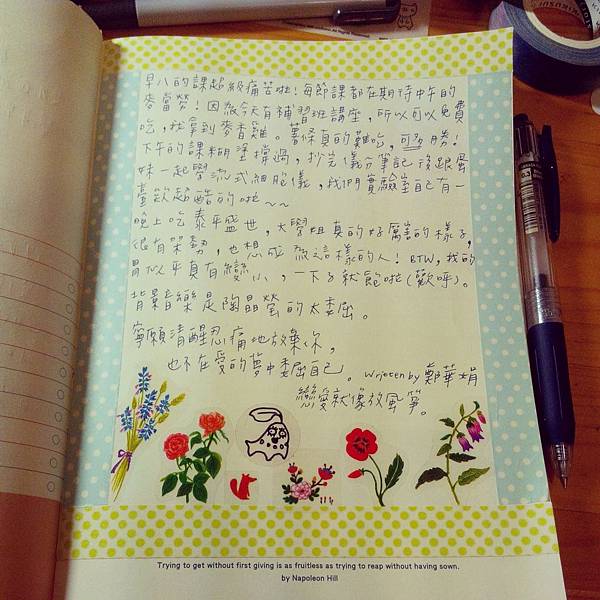 早八的課超級痛苦啦！每節課都在期待中午的
麥當勞！因為今天有補習班講座，所以可以免費
吃，社拿到麥香雞。薯條真的難吃，可多勝！
下午的課糊塗撐過，抄完儀分筆記後跟蛋
妹一起學流式細胞儀，我們實驗室自己有一
臺欸超酷的啦~~
晚上吃泰平盛世，大學姐真的好厲害的樣子，
很有架勢，也想成為這樣的人！BTW，我的
胃似乎真有變小，一下子就飽啦(歡呼)。
背景音樂是陶晶瑩的太委屈。
寧願清醒忍痛地放棄你，
也不在愛的夢中委屈自己。written by 鄭華娟
戀愛就像放風箏。
Trying to get without first giving is as fruitless as trying to reap without having sown.
by Napoleon Hill